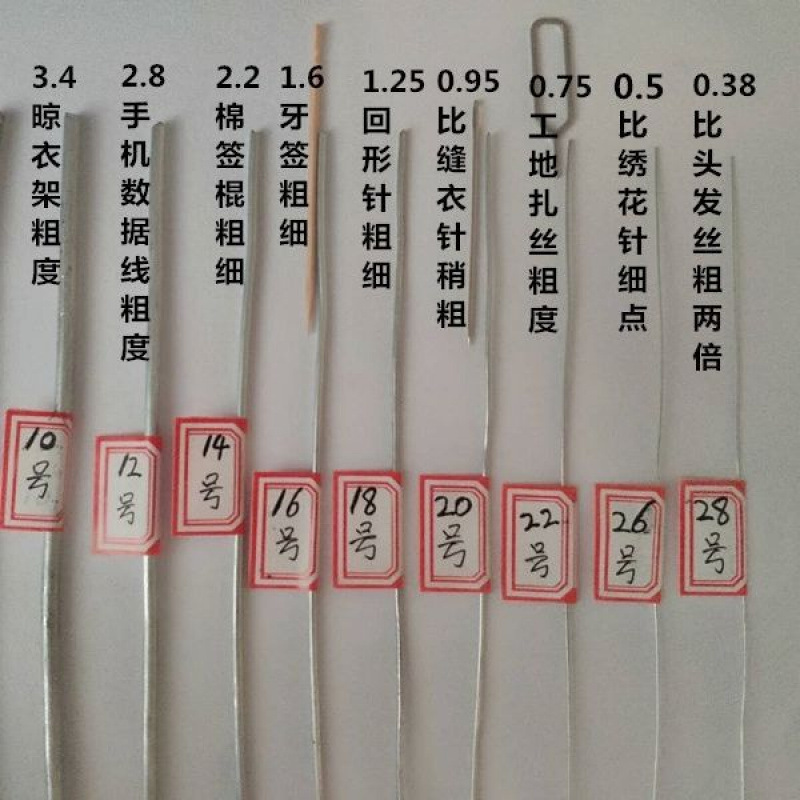 3.4
晾衣架粗度
2.8
手机数据线粗度
2.2
棉签棍粗细
1.6
牙签粗细
1.25
回形针粗细
0.95
比缝衣针稍粗
0.75
工地扎丝粗度
0.5
比绣花针细点
0.38
比头发丝粗两倍
10
号
12
号
14
号
16
号
18
号
20
号
22
号
26
号
28
号